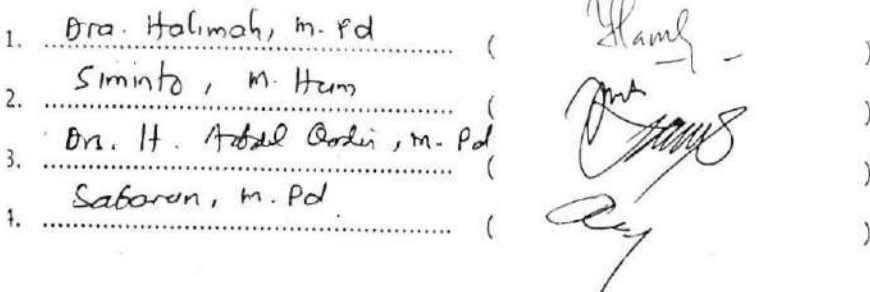 1. Dra. Halimah, M.Pd (
)
2. Siminto, M. Hum (
)
3. Drs. H. Abdul Qodir, M. Pd (
)
4. Sabarun, M. Pd (
)